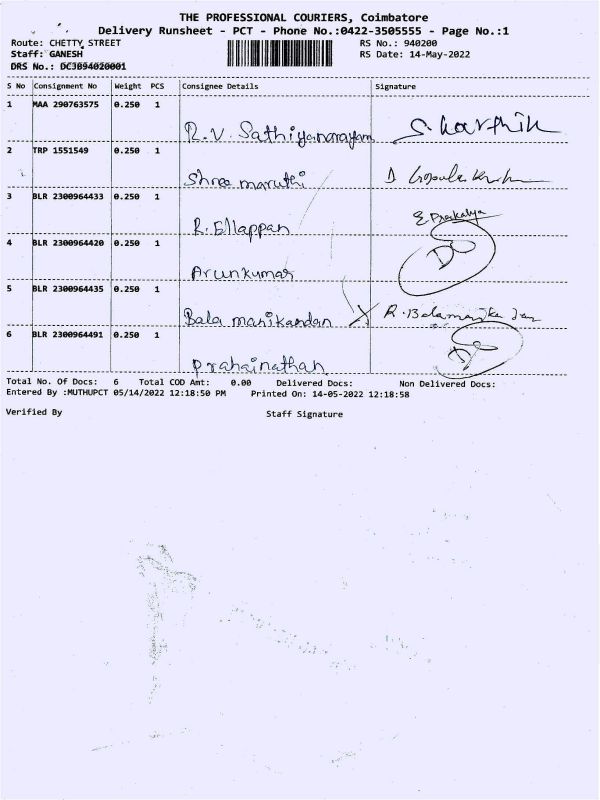 THE PROFESSIONAL COURIERS, Coimbatore
Delivery Runsheet - PCT - Phone No.:0422-3505555 - Page No.:1
Route: CHETTY STREET RS No.: 940200
Staff: GANESH RS Date: 14-May-2022
DRS No.: DC3094020001
S No Consignment No Weight PCS Consignee Details Signature
1 MAA 290763575 0.250 1
R.V. Sathiyanarayam S. Karthik
2 TRP 1551549 0.250 1
Shree maruthi
3 BLR 2300964433 0.250 1
R. Ellappan
4 BLR 2300964420 0.250 1
Arunkumar
5 BLR 2300964435 0.250 1
Bala manikandan
6 BLR 2300964491 0.250 1
Total No. Of Docs: 6 Total COD Amt: 0.00 Delivered Docs: Non Delivered Docs:
Entered By :MUTHUPCT 05/14/2022 12:18:50 PM Printed On: 14-05-2022 12:18:58
Verified By Staff Signature